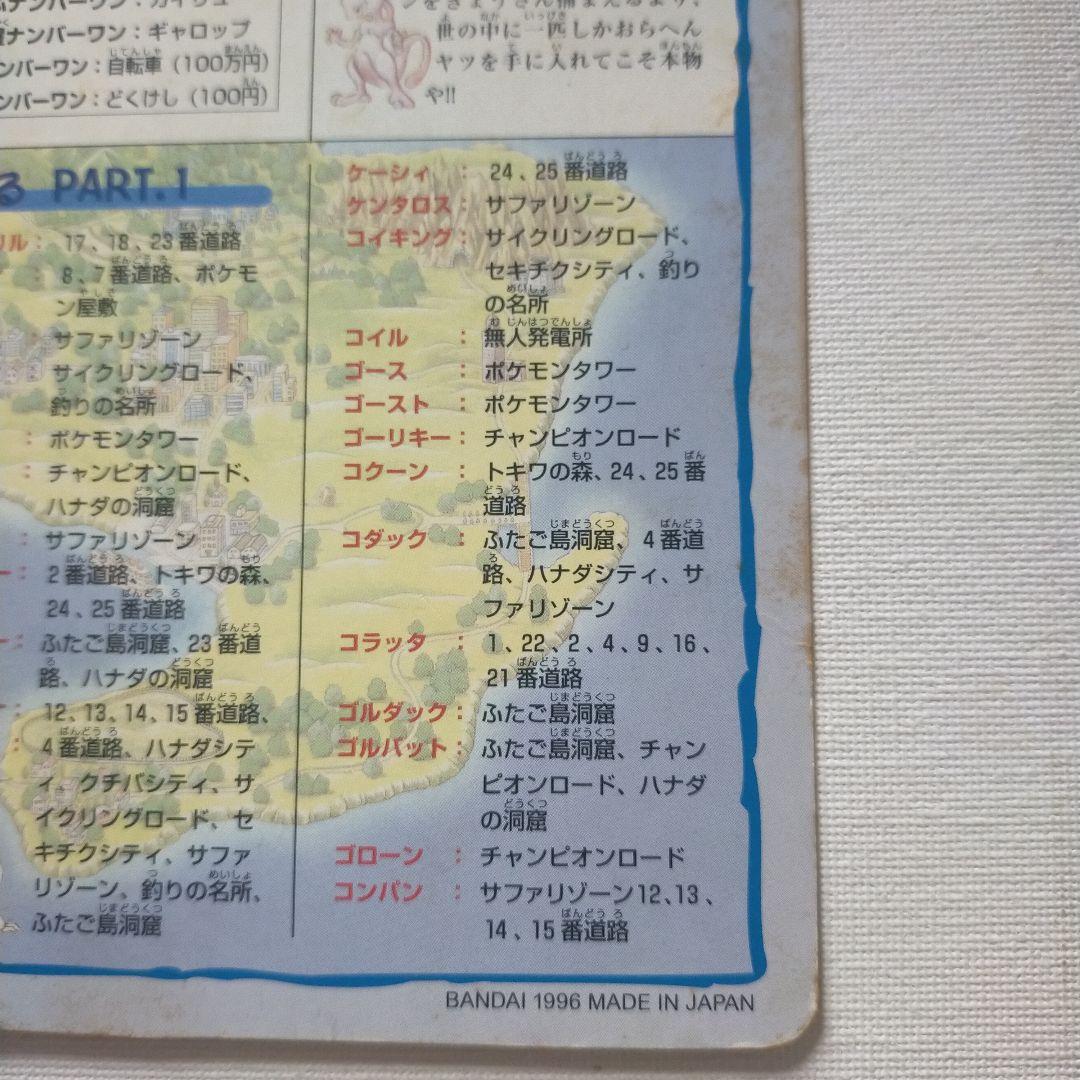 ナンバーワン：カイリュー
ナンバーワン：ギャロップ
ンバーワン：自転車（100万円）
ンバーワン：どくけし（100円）
世の中に一匹しかおらへん
ヤツを手に入れてこそ本物
や!!
る PART.1
リル： 17、18、23番道路
： 8、7番道路、ポケモ
ン屋敷
サファリゾーン
サイクリングロード、
釣りの名所
： ポケモンタワー
： チャンピオンロード、
ハナダの洞窟
： サファリゾーン
ー： 2番道路、トキワの森、
24、25番道路
ー： ふたご島洞窟、23番道
路、ハナダの洞窟
： 12、13、14、15番道路、
4番道路、ハナダシテ
ィ、クチバシティ、サ
イクリングロード、セ
キチクシティ、サファ
リゾーン、釣りの名所、
ふたご島洞窟
ケーシィ： 24、25番道路
ケンタロス： サファリゾーン
コイキング： サイクリングロード、
セキチクシティ、釣り
の名所
コイル： 無人発電所
ゴース： ポケモンタワー
ゴースト： ポケモンタワー
ゴーリキー： チャンピオンロード
コクーン： トキワの森、24、25番
道路
コダック： ふたご島洞窟、4番道
路、ハナダシティ、サ
ファリゾーン
コラッタ： 1、22、2、4、9、16、
21番道路
ゴルダック： ふたご島洞窟
ゴルバット： ふたご島洞窟、チャン
ピオンロード、ハナダ
の洞窟
ゴローン： チャンピオンロード
コンパン： サファリゾーン12、13、
14、15番道路
BANDAI 1996 MADE IN JAPAN